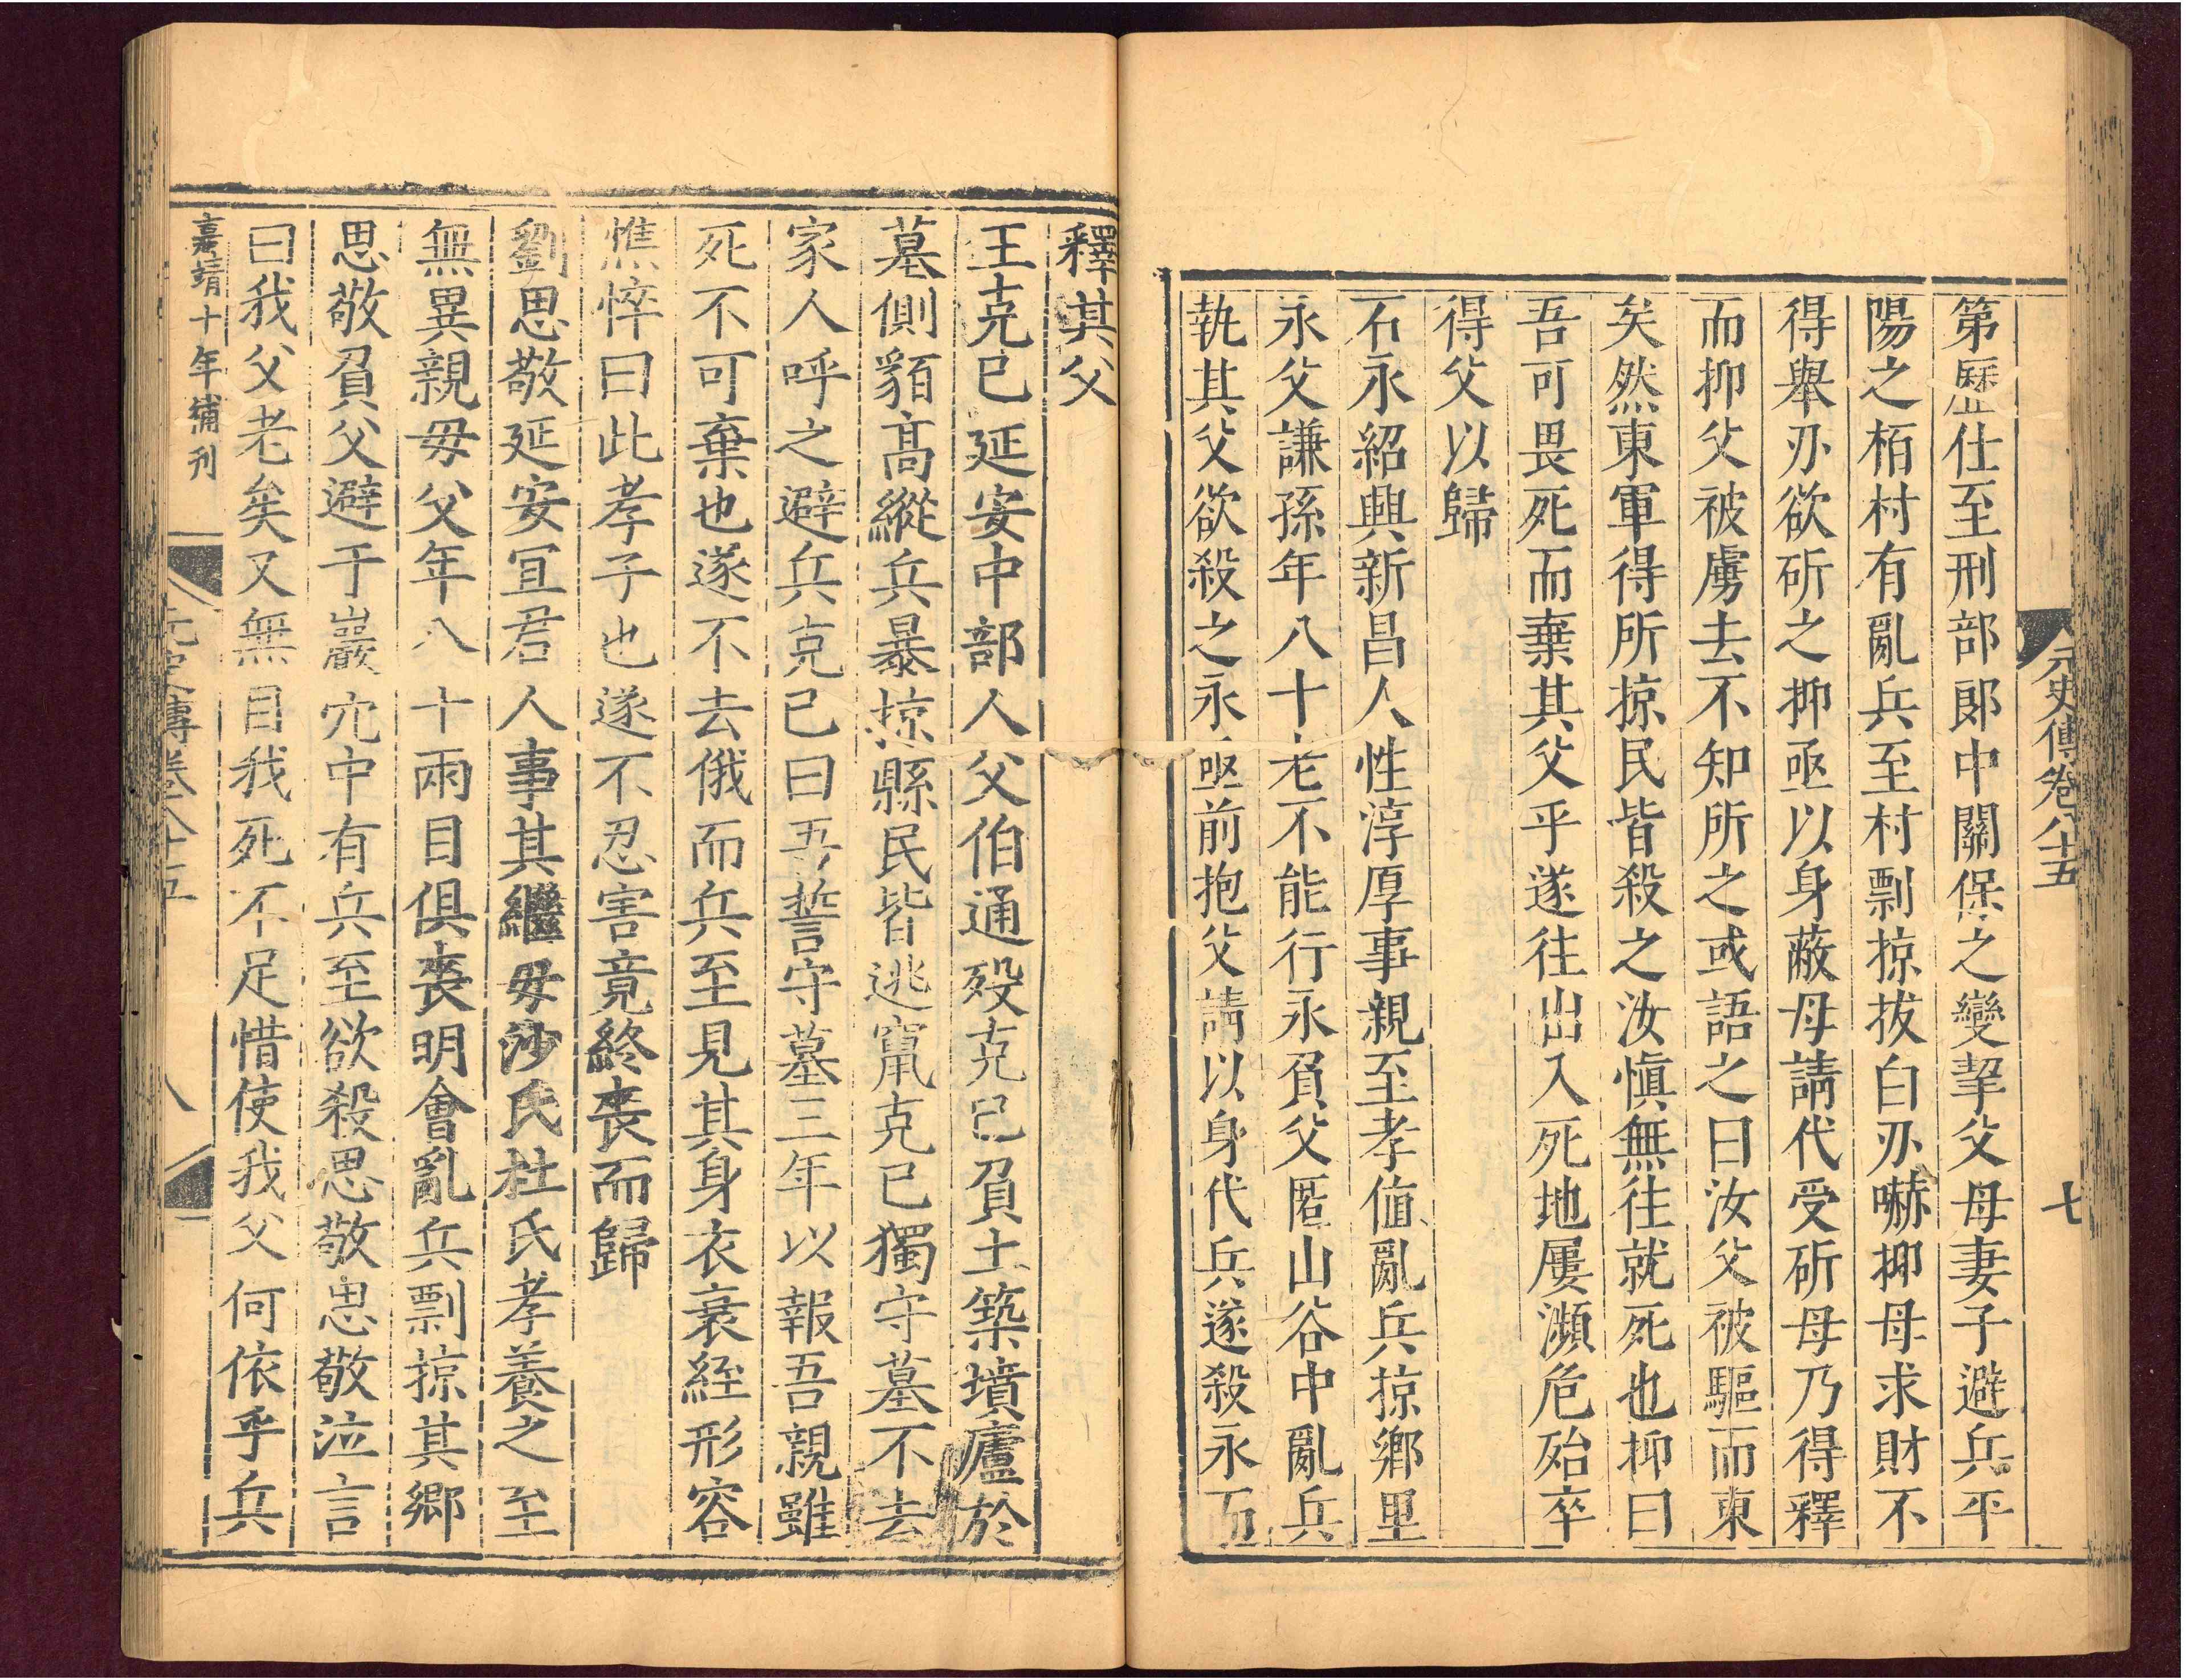 元史傳卷八十五
七
第歷仕至刑部郎中關保之變挈父母妻子避兵平
陽之栢村有亂兵至村剽掠拔白刃嚇抑母求財不
得舉刃欲斫之抑亟以身蔽母請代受斫母乃得釋
而抑父被虜去不知所之或語之曰汝父被驅而東
矣然東軍得所掠民皆殺之汝愼無往就死也抑曰
吾可畏死而棄其父乎遂往出入死地屢瀕危殆卒
得父以歸
石永紹興新昌人性淳厚事親至孝值亂兵掠鄉里
永父謙孫年八十老不能行永負父匿山谷中亂兵
執其父欲殺之永亟前抱父請以身代兵遂殺永而
釋其父
王克已延安中部人父伯通歿克己負土築墳廬於
墓側貊高縱兵暴掠縣民皆逃竄克已獨守墓不去
家人呼之避兵克己曰吾誓守墓三年以報吾親雖
死不可棄也遂不去俄而兵至見其身衣衰絰形容
憔悴曰此孝子也遂不忍害竟終喪而歸
劉思敬延安宜君人事其繼母沙氏杜氏孝養之至
無異親母父年八十兩目俱喪明會亂兵剽掠其鄉
思敬負父避于巖穴中有兵至欲殺思敬思敬泣言
曰我父老矣又無目我死不足惜使我父何依乎兵
嘉靖十年補刊
元史傳卷八十五
八